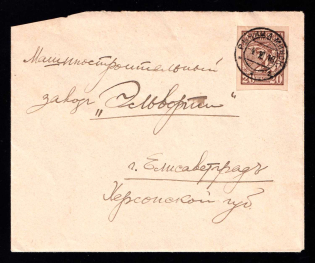 Машиностроительный
заводъ „Эльворти“
г. Елисаветградъ
Херсонской губ
20 20